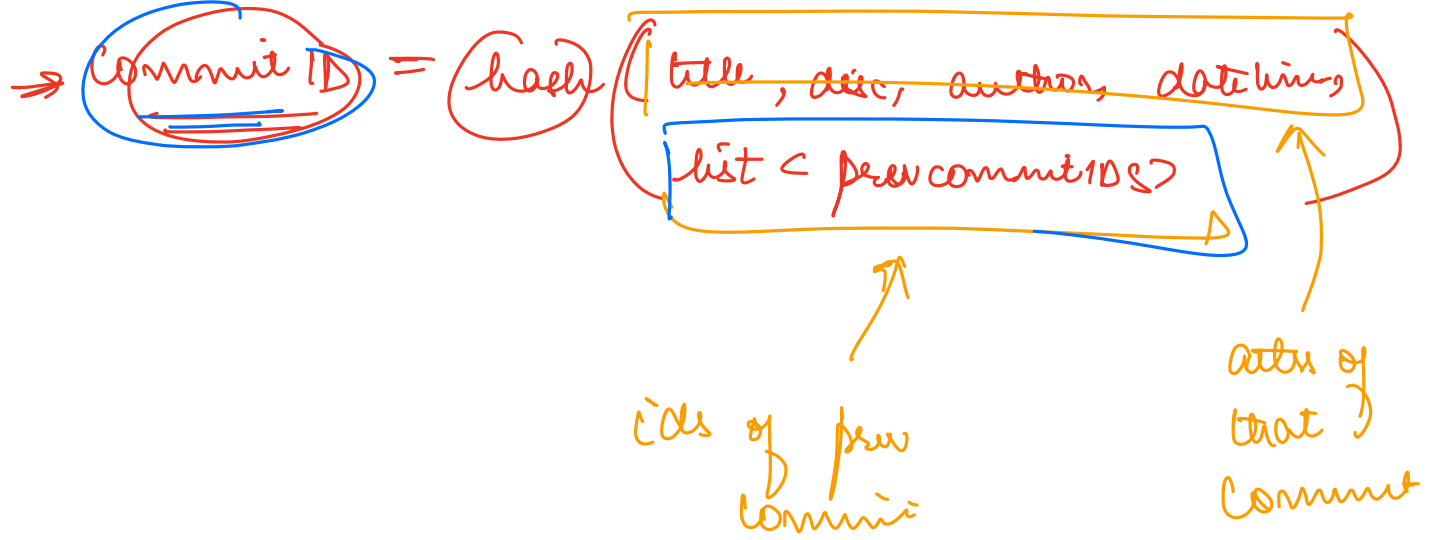 Commit ID = hash (title, disc, author, datetime,
list < prevcommitIDS>
ids of prev
commi
attrs of
that
commit